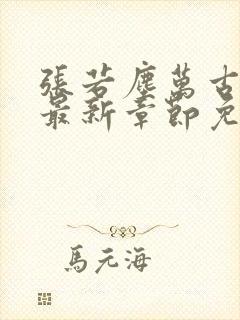 張若塵萬古
最新章節免
馬元海